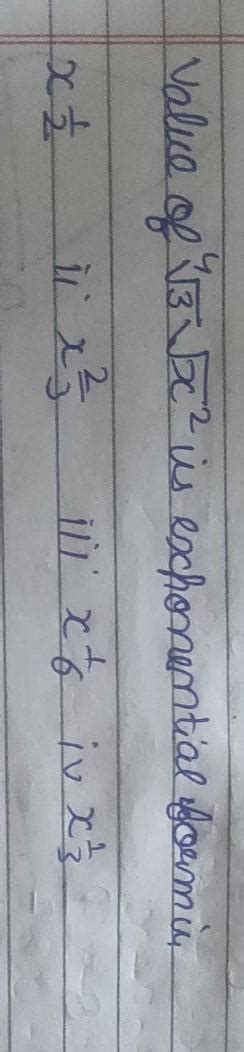 Value of ⁴√3√x² is exponential form is,
x^1/2 ii x^2/3 iii x^1/6 iv x^1/3